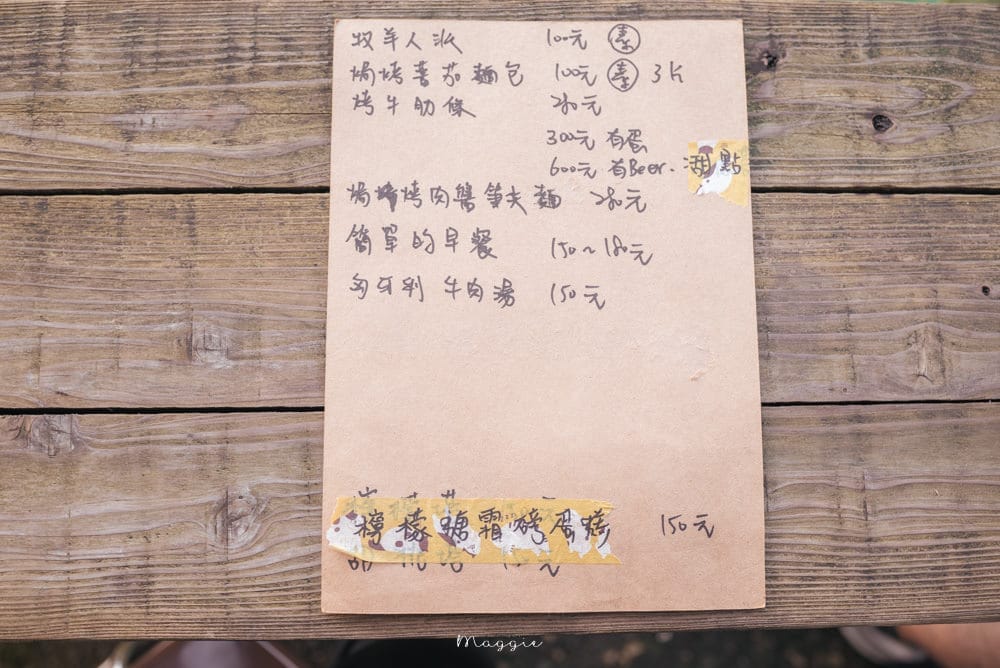 牧羊人派 100元 素
焗烤蕃茄麵包 100元 素 3片
烤牛肋條 280元
300元 有蛋
600元 有Beer. 甜點
焗烤烤肉醬筆尖麵 280元
簡單的早餐 150~180元
匈牙利牛肉湯 150元
檸檬糖霜磅蛋糕 150元
Maggie